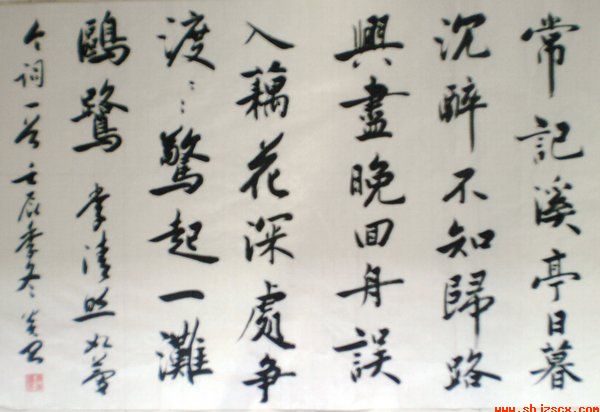 常記溪亭日暮
沉醉不知歸路
興盡晚回舟誤
入藕花深處爭
渡：：驚起一灘
鷗鷺 李清照如夢
令詞一首 壬辰季冬